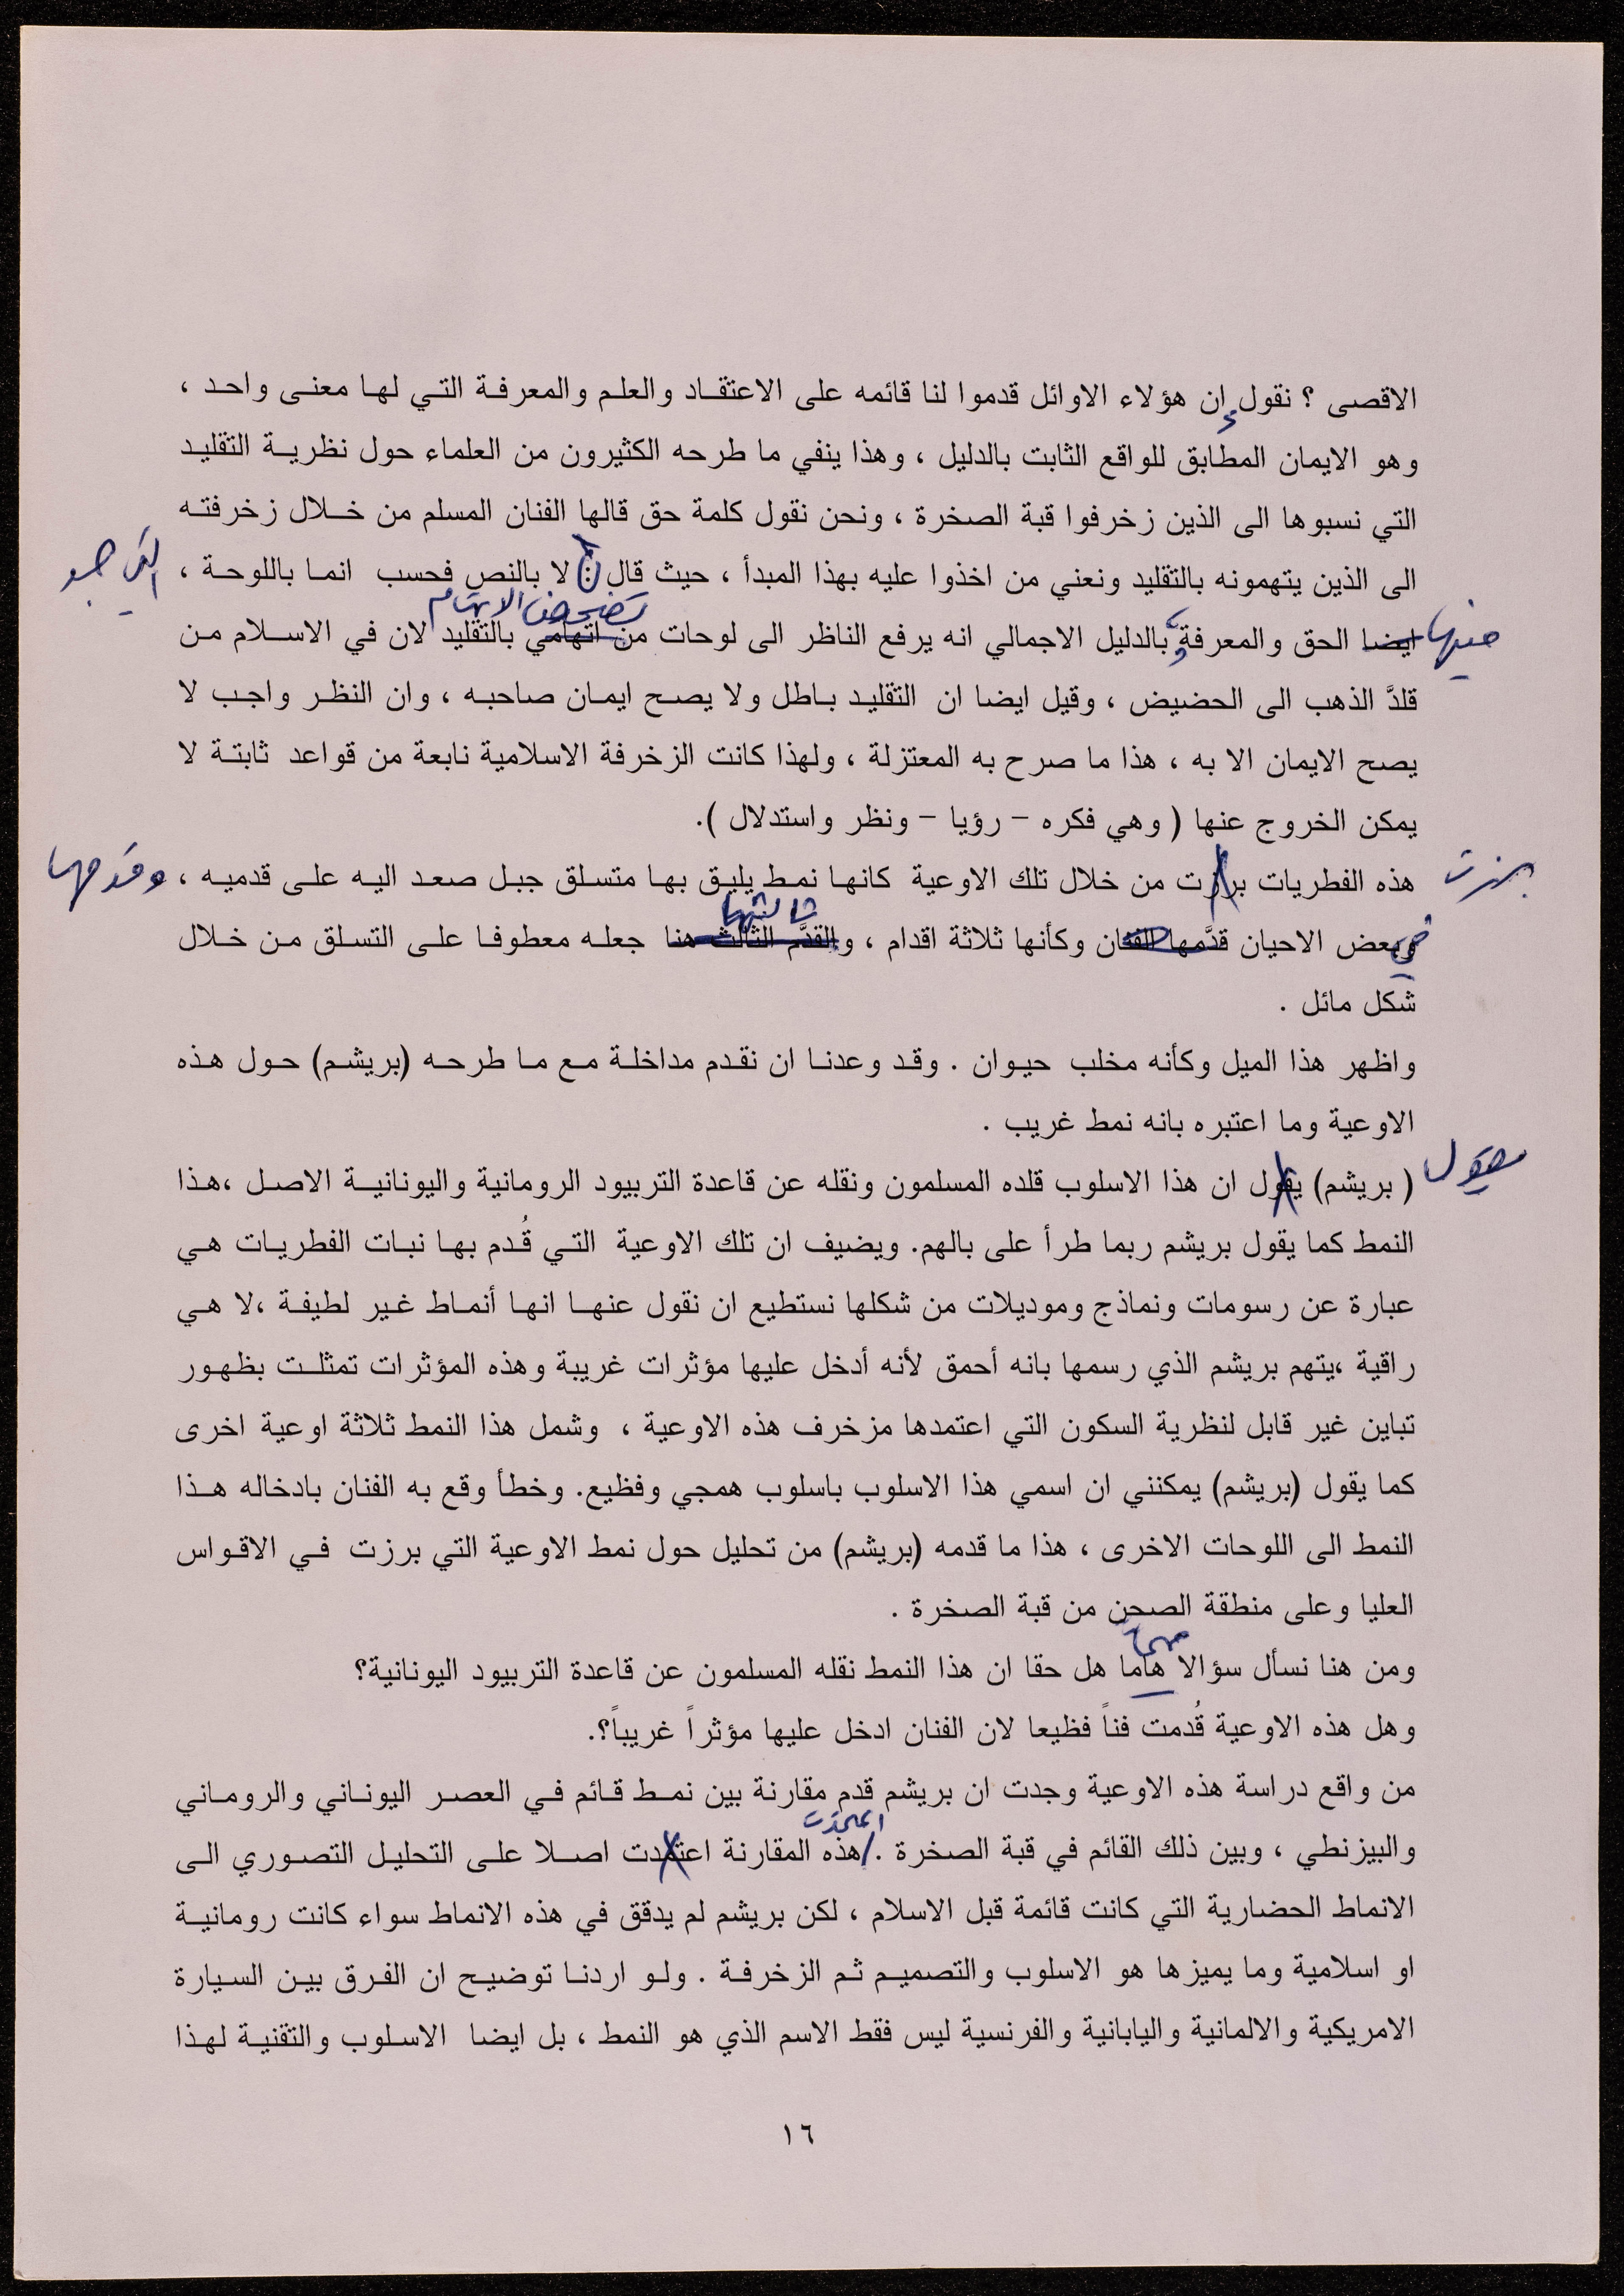 الاقصى ؟ نقول ان هؤلاء الاوائل قدموا لنا قائمه على الاعتقاد والعلم والمعرفة التي لها معنى واحد ،
وهو الايمان المطابق للواقع الثابت بالدليل ، وهذا ينفي ما طرحه الكثيرون من العلماء حول نظرية التقليد
التي نسبوها الى الذين زخرفوا قبة الصخرة ، ونحن نقول كلمة حق قالها الفنان المسلم من خلال زخرفته
الى الذين يتهمونه بالتقليد ونعني من اخذوا عليه بهذا المبدأ ، حيث قال : لا بالنص فحسب انما باللوحة ،
الاتهام
ايضا الحق والمعرفة بالدليل الاجمالي انه يرفع الناظر الى لوحات من اتهامي بالتقليد لان في الاسلام من
قلدَّ الذهب الى الحضيض ، وقيل ايضا ان التقليد باطل ولا يصح ايمان صاحبه ، وان النظر واجب لا
يصح الايمان الا به ، هذا ما صرح به المعتزلة ، ولهذا كانت الزخرفة الاسلامية نابعة من قواعد ثابتة لا
يمكن الخروج عنها ( وهي فكره – رؤيا – ونظر واستدلال ).
برزت هذه الفطريات برزت من خلال تلك الاوعية كانها نمط يليق بها متسلق جبل صعد اليه على قدميه ، وقدمها
ثالثها
وبعض الاحيان قدَّمها الفنان وكأنها ثلاثة اقدام ، والقدَّم الثالث هنا جعله معطوفا على التسلق من خلال
شكل مائل .
واظهر هذا الميل وكأنه مخلب حيوان . وقد وعدنا ان نقدم مداخلة مع ما طرحه (بريشم) حول هذه
الاوعية وما اعتبره بانه نمط غريب .
يقول ( بريشم) يقول ان هذا الاسلوب قلده المسلمون ونقله عن قاعدة التربيود الرومانية واليونانية الاصل ،هذا
النمط كما يقول بريشم ربما طرأ على بالهم. ويضيف ان تلك الاوعية التي قُدم بها نبات الفطريات هي
عبارة عن رسومات ونماذج وموديلات من شكلها نستطيع ان نقول عنها انها أنماط غير لطيفة ،لا هي
راقية ،يتهم بريشم الذي رسمها بانه أحمق لأنه أدخل عليها مؤثرات غريبة وهذه المؤثرات تمثلت بظهور
تباين غير قابل لنظرية السكون التي اعتمدها مزخرف هذه الاوعية ، وشمل هذا النمط ثلاثة اوعية اخرى
كما يقول (بريشم) يمكنني ان اسمي هذا الاسلوب باسلوب همجي وفظيع. وخطأ وقع به الفنان بادخاله هذا
النمط الى اللوحات الاخرى ، هذا ما قدمه (بريشم) من تحليل حول نمط الاوعية التي برزت في الاقواس
العليا وعلى منطقة الصحن من قبة الصخرة .
ومن هنا نسأل سؤالا هاما هل حقا ان هذا النمط نقله المسلمون عن قاعدة التربيود اليونانية؟
وهل هذه الاوعية قُدمت فناً فظيعا لان الفنان ادخل عليها مؤثراً غريباً؟.
من واقع دراسة هذه الاوعية وجدت ان بريشم قدم مقارنة بين نمط قائم في العصر اليوناني والروماني
والبيزنطي ، وبين ذلك القائم في قبة الصخرة . هذه المقارنة اعتمدت اصلا على التحليل التصوري الى
الانماط الحضارية التي كانت قائمة قبل الاسلام ، لكن بريشم لم يدقق في هذه الانماط سواء كانت رومانية
او اسلامية وما يميزها هو الاسلوب والتصميم ثم الزخرفة . ولو اردنا توضيح ان الفرق بين السيارة
الامريكية والالمانية واليابانية والفرنسية ليس فقط الاسم الذي هو النمط ، بل ايضا الاسلوب والتقنية لهذا
١٦